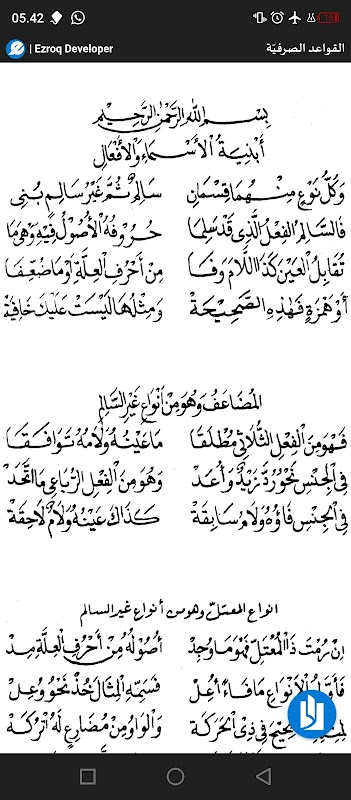 05.42
| Ezroq Developer القواعد الصرفيّة
بِسْمِ اللهِ الرَّحْمٰنِ الرَّحِيْمِ
أَبْنِيَةُ الْأَسْمَاءِ وَالْأَفْعَالِ
وَكُلُّ نَوْعٍ مِنْهُمَا قِسْمَانِ سَالِمٌ ثُمَّ غَيْرُ سَالِمٍ بُنِى
فَالسَّالِمُ الفِعْلُ الَّذِى قَدْ سَلِمَا حُرُوْفُهُ الْأُصُوْلُ فِيْهِ وَهْىَ مَا
تُقَابِلُ الْعَيْنَ كَذَا اللَّامَ وَفَا مِنْ أَحْرُفِ الْعِلَّةِ أَوْ مَا ضُعِّفَا
أَوْ هَمْزَةٍ فَهٰذِهِ الصَّحِيْحَةْ وَمِثْلُهَا لَيْسَتْ عَلَيْكَ خَافِيَةْ
المُضَاعَفُ وَهُوَ مِنْ أَنْوَاعِ غَيْرِ السَّالِمِ
فَهْوَ مِنَ الْفِعْلِ الثُّلَاثِي مُطْلَقَا مَا عَيْنُهُ وَلَامُهُ تَوَافَقَا
فِى الْجِنْسِ نَحْوُ رَدَّ زَيْدٌ وَأَعَدْ وَهُوَ مِنَ الْفِعْلِ الرُّبَاعِى مَا اتَّحَدْ
فِى الْجِنْسِ فَاؤُهُ وَلَامٌ سَابِقَةْ كَذَاكَ عَيْنُهُ وَلَامٌ لَاحِقَةْ
انواع المعتلّ وهو من أنواع غير السالم
اِنْ رُمْتَ ذَا الْمُعْتَلِّ فَهْوَ مَا وُجِدْ أُصُوْلُهُ مِنْ أَحْرُفِ الْعِلَّةِ مِدْ
فَأَوَّلُ الْأَنْوَاعِ مَا فَاءً أُعِلْ فَسَمِّهِ الْمِثَالَ خُذْ نَحْوُ وُعِلْ
فِى ذِى الْحَرَكَةْ وَالْوَاوُ مِنْ مُضَارِعٍ لَهُ اتْرُكَهْ